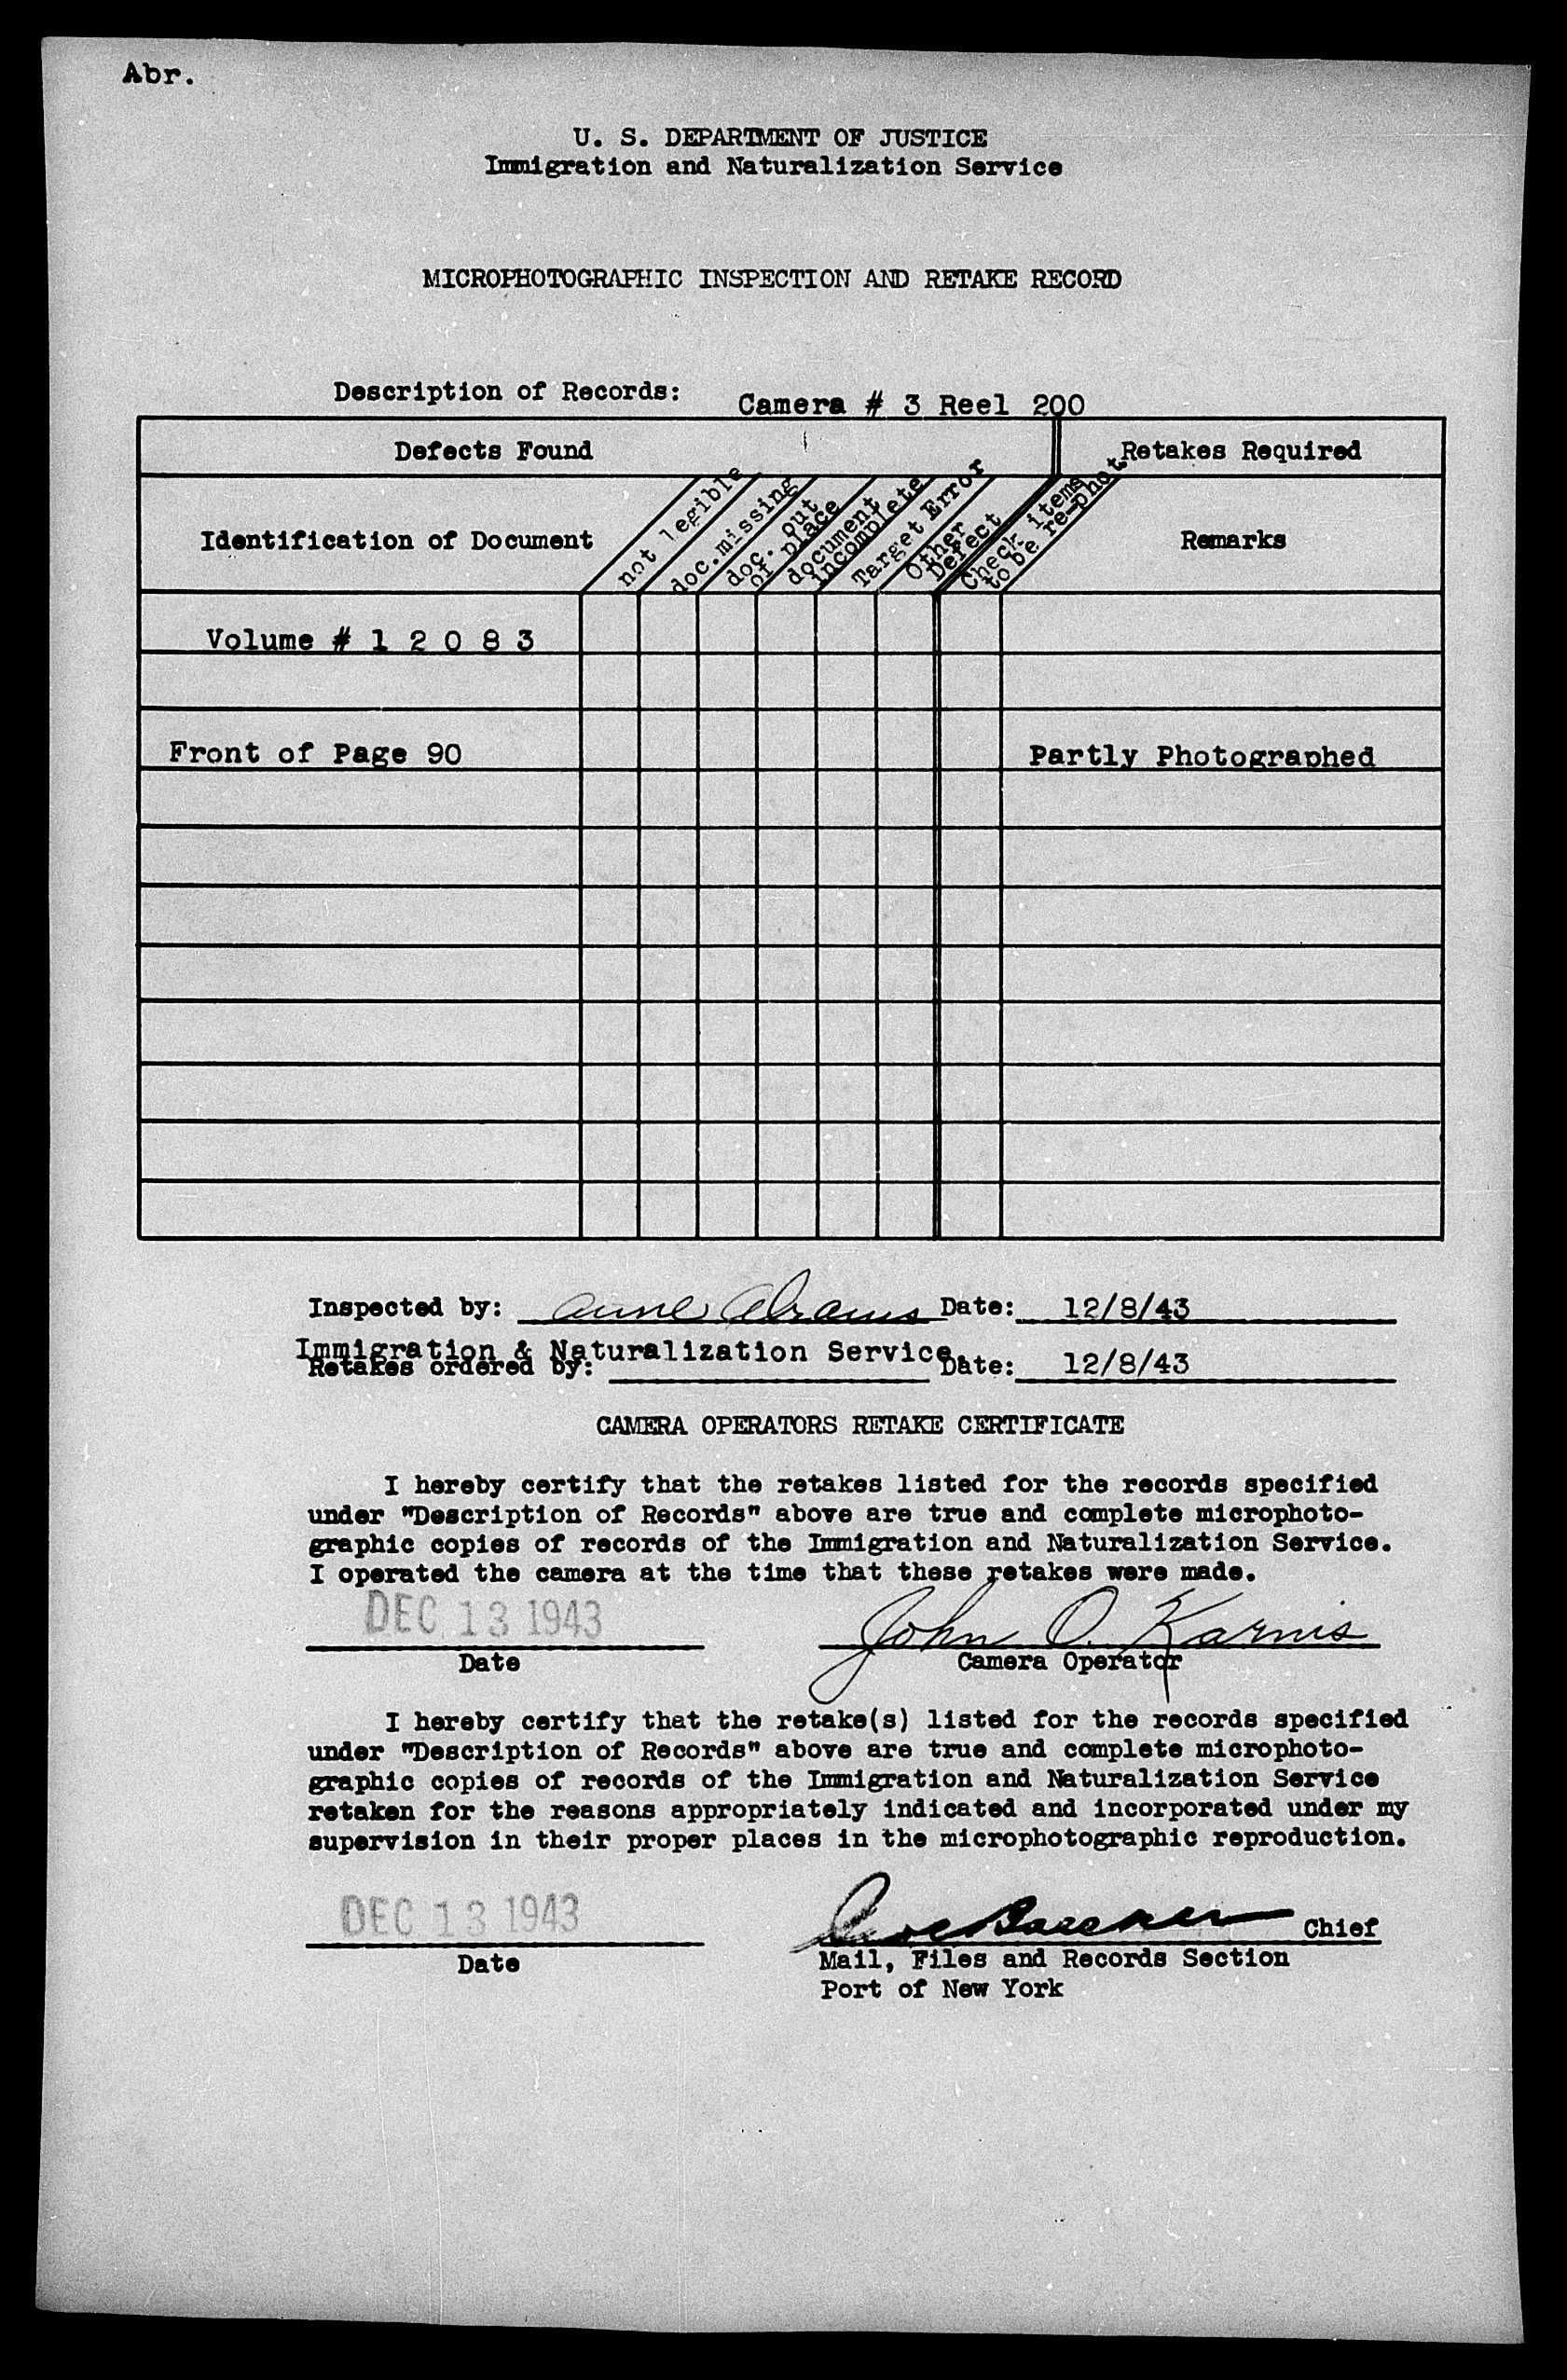 Abr.
U. S. DEPARTMENT OF JUSTICE
Immigration and Naturalization Service
MICROPHOTOGRAPHIC INSPECTION AND RETAKE RECORD
Description of Records: Camera # 3 Reel 200
Defects Found
Retakes Required
Identification of Document
not legible
doc.missing
doc. out
of place
document
incomplete
Target Error
Other
Defect
Check items
to be re-phot
Remarks
Volume # 1 2 0 8 3
Front of Page 90
Partly Photographed
Inspected by: Anne Abrams Date: 12/8/43
Immigration & Naturalization Service.
Retakes ordered by: Date: 12/8/43
CAMERA OPERATORS RETAKE CERTIFICATE
I hereby certify that the retakes listed for the records specified
under "Description of Records" above are true and complete microphoto-
graphic copies of records of the Immigration and Naturalization Service.
I operated the camera at the time that these retakes were made.
DEC 13 1943
John O. Karnis
Date
Camera Operator
I hereby certify that the retake(s) listed for the records specified
under "Description of Records" above are true and complete microphoto-
graphic copies of records of the Immigration and Naturalization Service
retaken for the reasons appropriately indicated and incorporated under my
supervision in their proper places in the microphotographic reproduction.
DEC 13 1943
Chief
Date
Mail, Files and Records Section
Port of New York